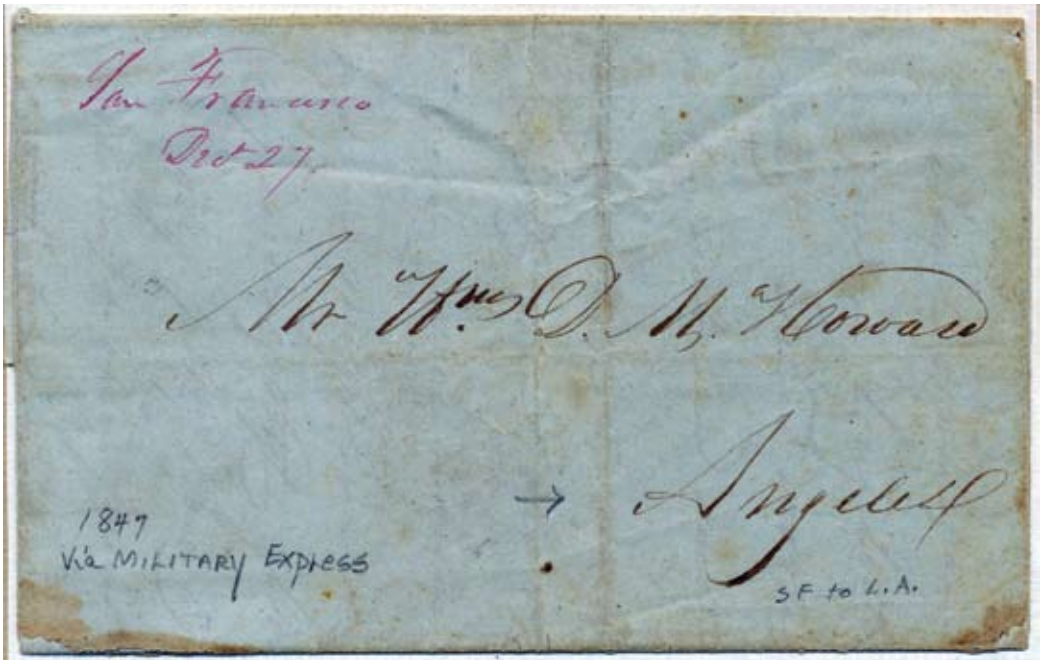 San Francisco
Dec 27.
Mr Wm D. M. Howard
→ Angeles
1847
Via MILITARY EXPRESS
SF to L.A.